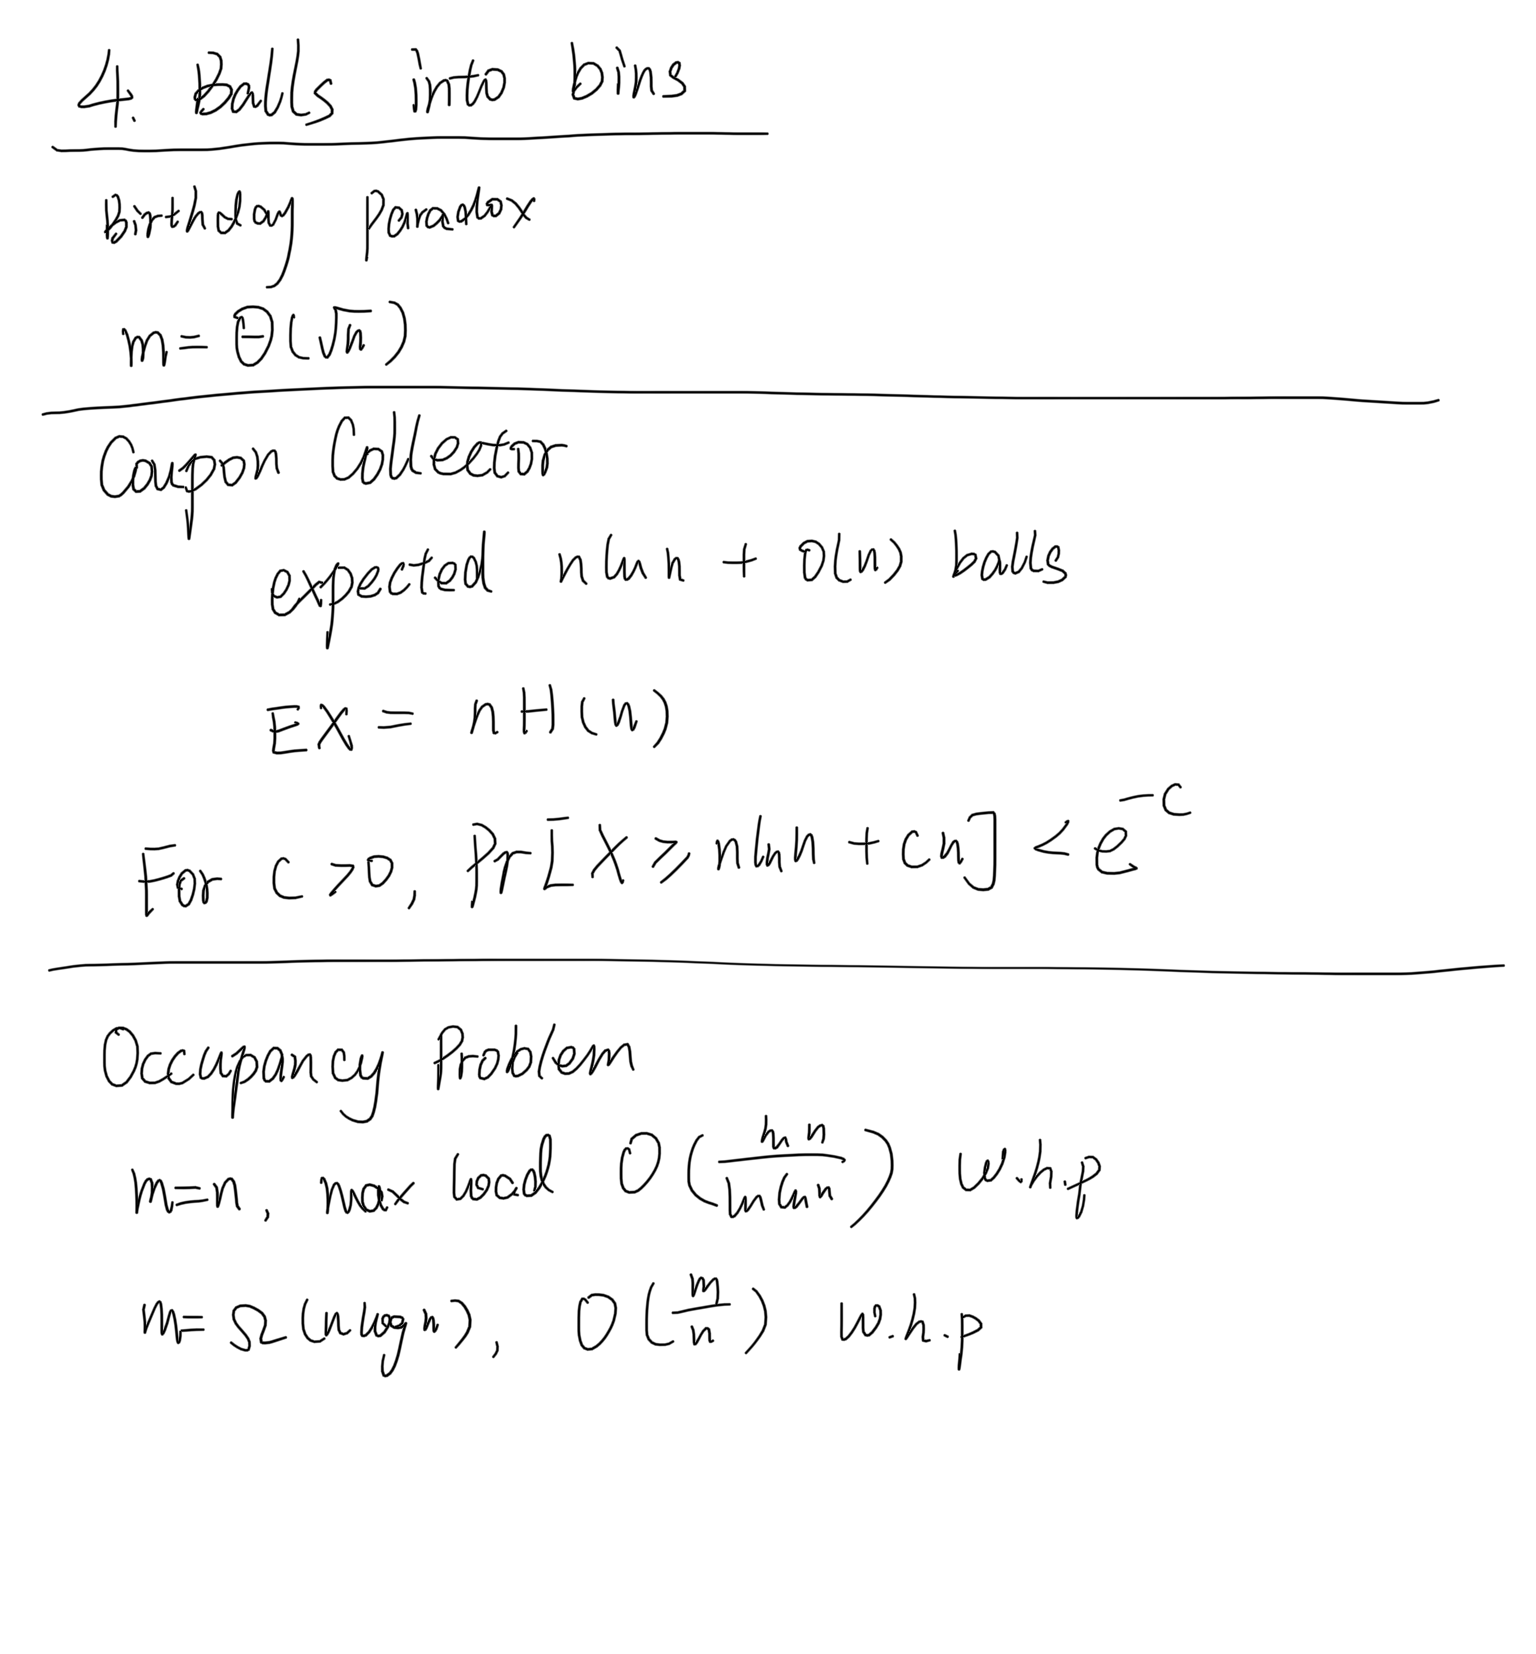 4. Balls into bins
Birthday Paradox
m = Θ(√n)
Coupon Collector
expected n ln n + O(n) balls
EX = nH(n)
For c > 0, Pr[X ⩾ n ln n + cn] < e^{-c}
Occupancy Problem
m=n, max load O(ln n / ln ln n) w.h.p
m= Ω(n log n), O(m/n) w.h.p